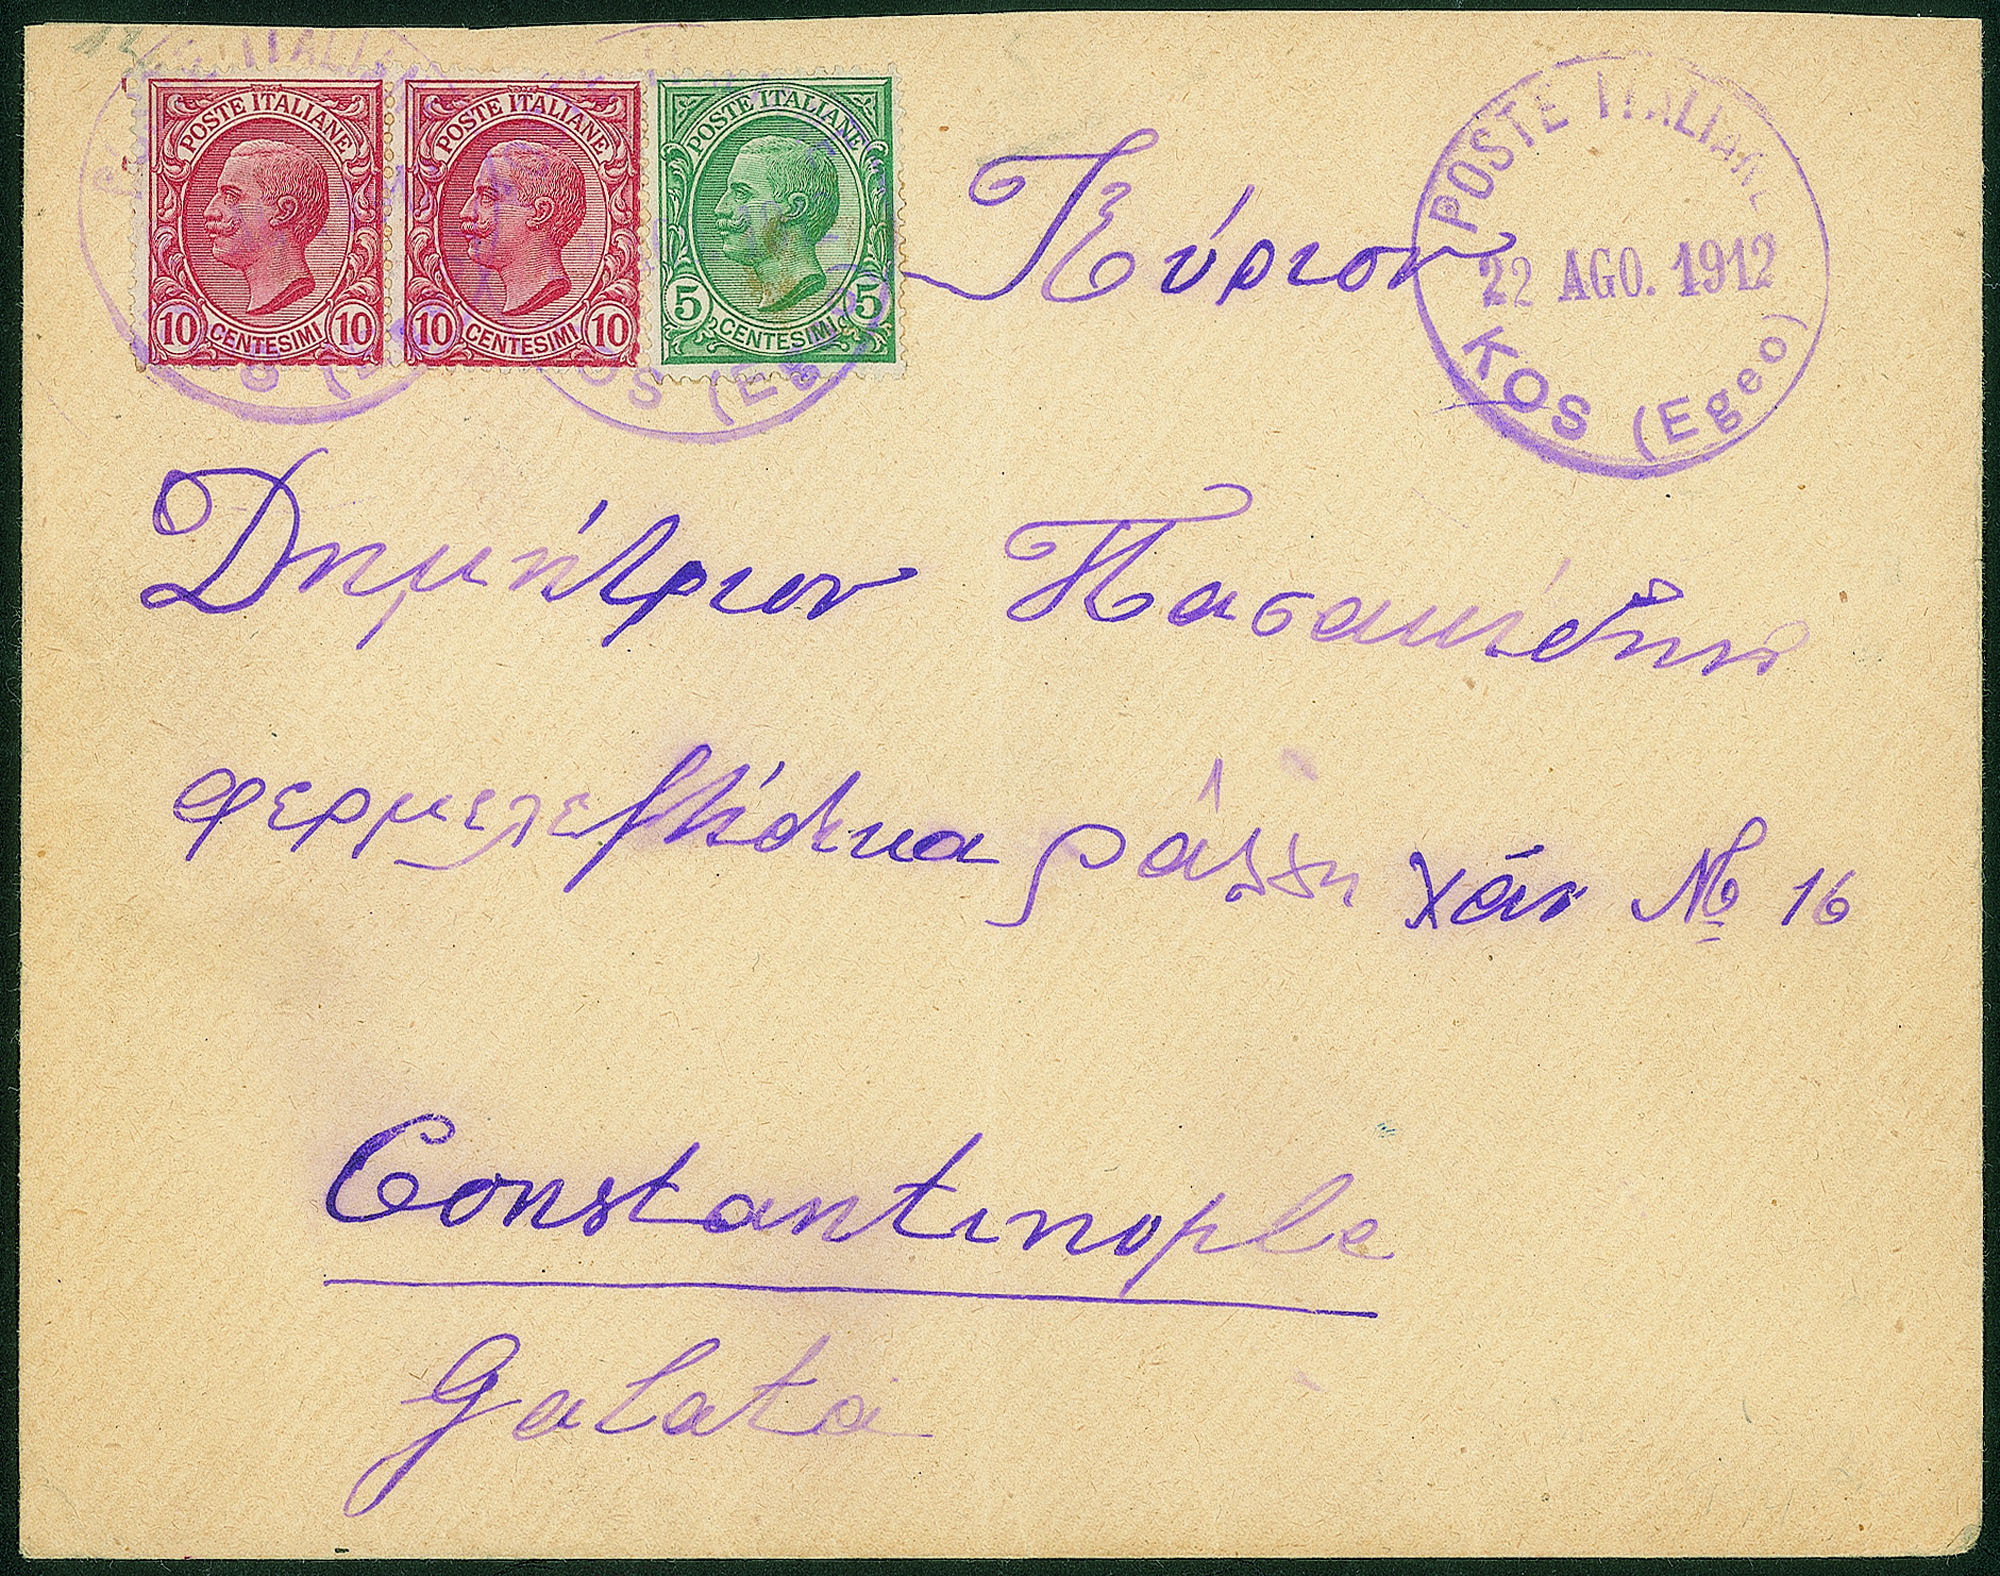 POSTE ITALIANE
10 CENTESIMI 10
POSTE ITALIANE
10 CENTESIMI 10
POSTE ITALIANE
5 CENTESIMI 5
POSTE ITALIANE
22 AGO. 1912
KOS (Egeo)
Κύριον
Δημήτριον Πασακίδην
φερμελετζίδικα ράλλη χάν № 16
Constantinople
Galata